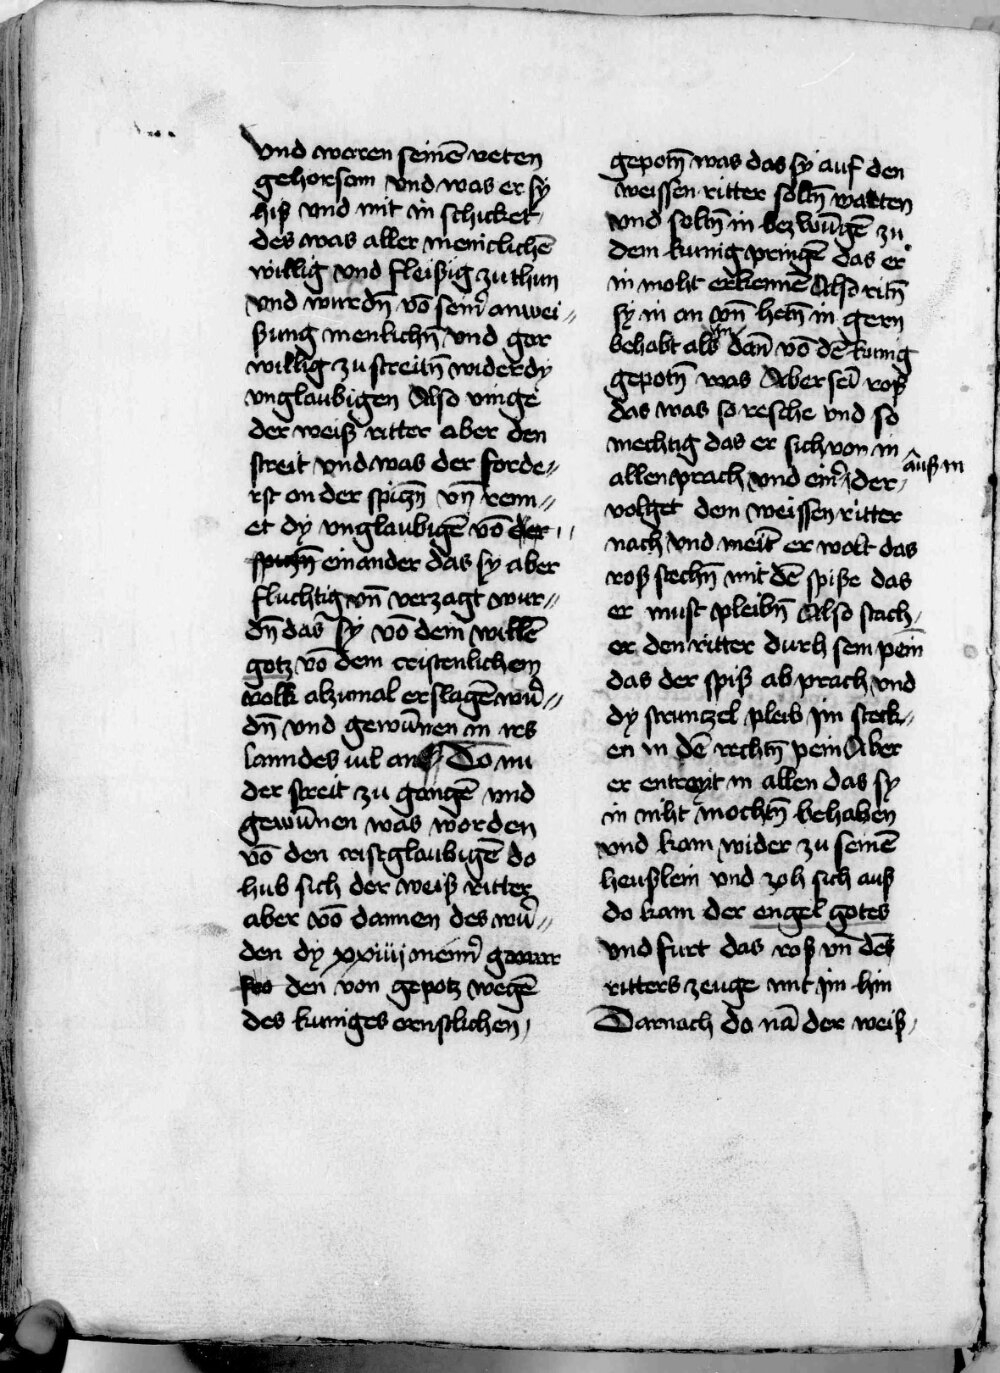 vnd woren seinē reten
gehorsam vnd was er sy
his vnd mit in schicket
des was aller meniclichē
willig vnd fleißig zu thun
vnd wurdn̄ vō seinr̄ anwei〃
ßung menlichn̄ vnd gar
willig zu streitn̄ wider dy
vnglaubigen Also vinge
der weiß ritter aber den
streit vnd was der forde〃
rst an der spiczn̄ vn̄ renn〃
et dy vnglaubigē vō der
spiczn̄ einander das sy aber
fluchtig vn̄ verzagt wur〃
dn̄ das sy vō dem willē
gotz vō dem cristenlichem
volk alzumal erslagē wur̄〃
dn̄ vnd gewūnen in irs
lanndes vil an Do nu
der streit zu gangē vnd
gewūnen was worden
vō den cristglaubigē do
hub sich der weiß ritter
aber vō dannen des wur̄〃
den dy xxiiij menn̄
den von gepotz wegē
des kuniges ernstlichen
gepotn̄ was das sy auf den
weissen ritter soltn̄ warten
vnd soltn̄ in bezwūgē zu
dem kunig pringē das er
in moht erkennē Also ritn̄
sy in an vn̄ hetn̄ in gern
behabt als in dan̄ vō dē kunig
gepotn̄ was Aber sei roß
das was so resche vnd so
mechtig das er sich von in
allen prach vnd einr̄ auß in der
volget dem weissen ritter
nach vnd meīt er wolt das
roß stechn̄ mit dē spiße das
er must pleibn̄ Also stach
er den ritter durh sein pein
das der spiß ab prach vnd
dy strunczel pleib im steck〃
en in dē rechtn̄ pein Aber
er entreyt in allen das sy
in niht mochtn̄ behaben
vnd kam wider zu seinē
heußlein vnd zoh sich auß
do kam der engel gotes
vnd furt das roß vn̄ des
ritters zeuge mit im hin
Darnach do nā der weiß